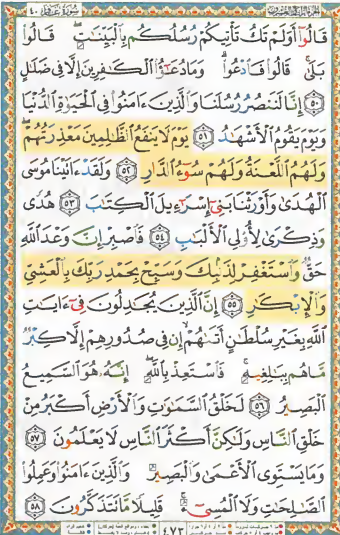 الجزء الرابع والعشرون سورة غافر ٤٠
قَالُوٓا۟ أَوَلَمْ تَكُ تَأْتِيكُمْ رُسُلُكُم بِٱلْبَيِّنَٰتِ ۖ قَالُوا۟
بَلَىٰ ۚ قَالُوا۟ فَٱدْعُوا۟ ۗ وَمَا دُعَٰٓؤُا۟ ٱلْكَٰفِرِينَ إِلَّا فِى ضَلَٰلٍ
٥٠ إِنَّا لَنَنصُرُ رُسُلَنَا وَٱلَّذِينَ ءَامَنُوا۟ فِى ٱلْحَيَوٰةِ ٱلدُّنْيَا
وَيَوْمَ يَقُومُ ٱلْأَشْهَٰدُ ٥١ يَوْمَ لَا يَنفَعُ ٱلظَّٰلِمِينَ مَعْذِرَتُهُمْ ۖ
وَلَهُمُ ٱللَّعْنَةُ وَلَهُمْ سُوٓءُ ٱلدَّارِ ٥٢ وَلَقَدْ ءَاتَيْنَا مُوسَى
ٱلْهُدَىٰ وَأَوْرَثْنَا بَنِىٓ إِسْرَٰٓءِيلَ ٱلْكِتَٰبَ ٥٣ هُدًى
وَذِكْرَىٰ لِأُو۟لِى ٱلْأَلْبَٰبِ ٥٤ فَٱصْبِرْ إِنَّ وَعْدَ ٱللَّهِ
حَقٌّ وَٱسْتَغْفِرْ لِذَنۢبِكَ وَسَبِّحْ بِحَمْدِ رَبِّكَ بِٱلْعَشِىِّ
وَٱلْإِبْكَٰرِ ٥٥ إِنَّ ٱلَّذِينَ يُجَٰدِلُونَ فِىٓ ءَايَٰتِ
ٱللَّهِ بِغَيْرِ سُلْطَٰنٍ أَتَىٰهُمْ ۙ إِن فِى صُدُورِهِمْ إِلَّا كِبْرٌ
مَّا هُم بِبَٰلِغِيهِ ۚ فَٱسْتَعِذْ بِٱللَّهِ ۖ إِنَّهُۥ هُوَ ٱلسَّمِيعُ
ٱلْبَصِيرُ ٥٦ لَخَلْقُ ٱلسَّمَٰوَٰتِ وَٱلْأَرْضِ أَكْبَرُ مِنْ
خَلْقِ ٱلنَّاسِ وَلَٰكِنَّ أَكْثَرَ ٱلنَّاسِ لَا يَعْلَمُونَ ٥٧
وَمَا يَسْتَوِى ٱلْأَعْمَىٰ وَٱلْبَصِيرُ وَٱلَّذِينَ ءَامَنُوا۟ وَعَمِلُوا۟
ٱلصَّٰلِحَٰتِ وَلَا ٱلْمُسِىٓءُ ۚ قَلِيلًا مَّا تَتَذَكَّرُونَ ٥٨
٤٧٣